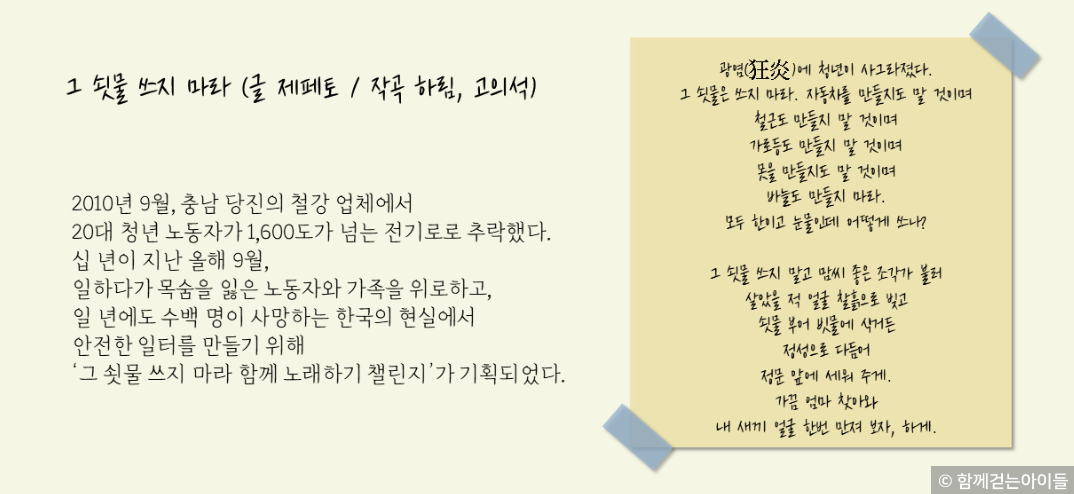 그 쇳물 쓰지 마라 (글 제페토 / 작곡 하림, 고의석)
2010년 9월, 충남 당진의 철강 업체에서
20대 청년 노동자가 1,600도가 넘는 전기로로 추락했다.
십 년이 지난 올해 9월,
일하다가 목숨을 잃은 노동자와 가족을 위로하고,
일 년에도 수백 명이 사망하는 한국의 현실에서
안전한 일터를 만들기 위해
‘그 쇳물 쓰지 마라 함께 노래하기 챌린지’가 기획되었다.
광염(狂炎)에 청년이 사그라졌다.
그 쇳물은 쓰지 마라. 자동차를 만들지도 말 것이며
철근도 만들지 말 것이며
가로등도 만들지 말 것이며
못을 만들지도 말 것이며
바늘도 만들지 마라.
모두 한이고 눈물인데 어떻게 쓰나?
그 쇳물 쓰지 말고 맘씨 좋은 조각가 불러
살았을 적 얼굴 찰흙으로 빚고
쇳물 부어 빗물에 식거든
정성으로 다듬어
정문 앞에 세워 주게.
가끔 엄마 찾아와
내 새끼 얼굴 한번 만져 보자, 하게.
© 함께걷는아이들